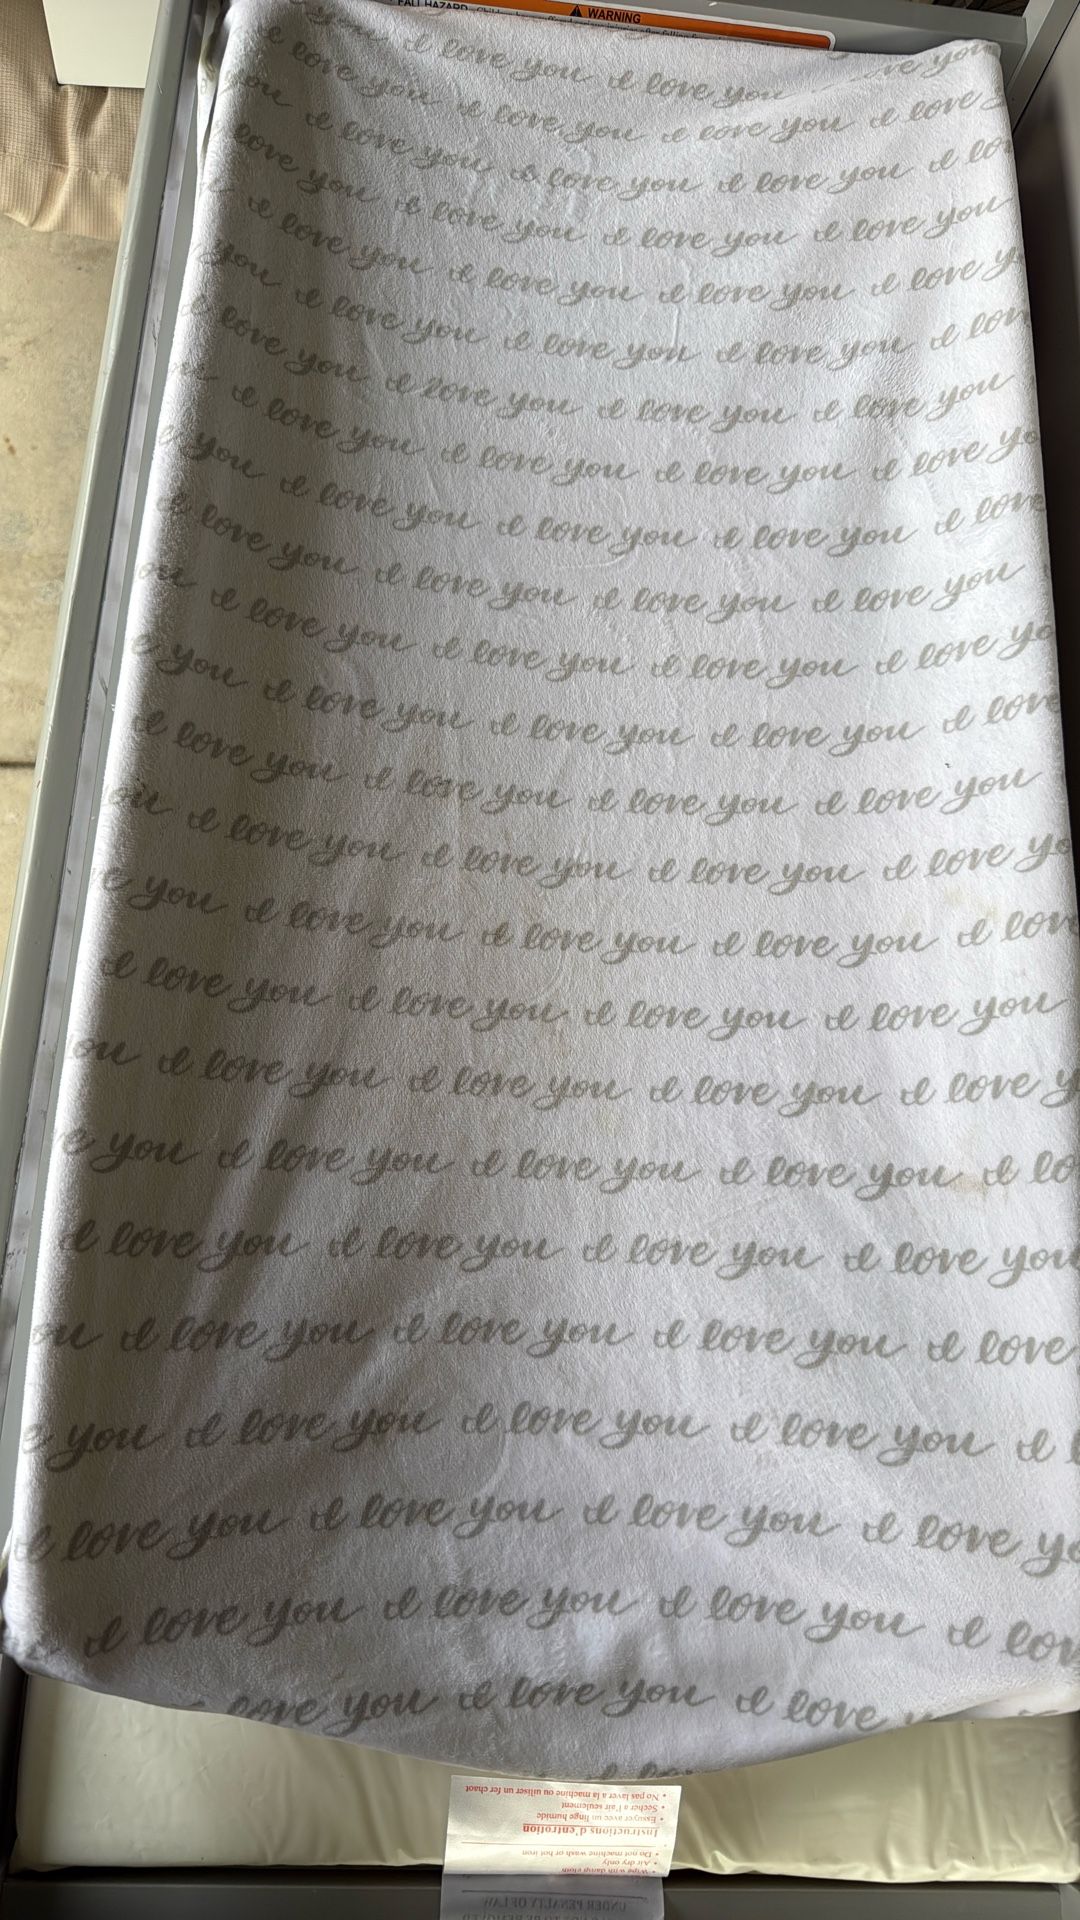 FALL HAZARD
WARNING
I love you I love you
love you I love you I love you I love
you I love you I love you I love you I love
love you I love you I love you I love you
I love you I love you I love you I love
you I love you I love you I love you I love
love you I love you I love you I love you
I love you I love you I love you I love yo
you I love you I love you I love you I love
I love you I love you I love you I love you
ou I love you I love you I love you I love yo
e you I love you I love you I love you I love
I love you I love you I love you I love you
ou I love you I love you I love you I love yo
e you I love you I love you I love you I lov
I love you I love you I love you I love you
ou I love you I love you I love you I love y
e you I love you I love you I love you I lo
I love you I love you I love you I love you
ou I love you I love you I love you I love
e you I love you I love you I love you I l
I love you I love you I love you I love yo
I love you I love you I love you I lov
love you I love you I love
• No pas laver a la machine ou utiliser un fer chaot
• Secher a l'air seulement
• Essuyer avec un linge humide
Instructions d'entrotion
• Do not machine wash or hot iron
• Air dry only
• Wipe with damp cloth
UNDER PENALTY OF LAW